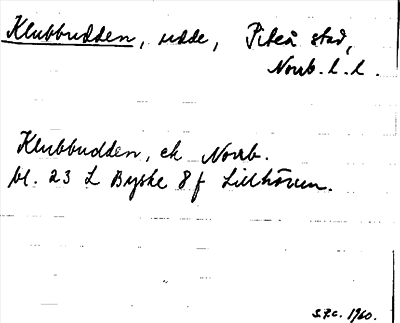 Klubbudden, udde, Piteå stad,
Norrb. l. l.
Klubbudden, ek Norrb.
bl. 23 L Byske 8 f Lillhören.
S.F.C. 1960.